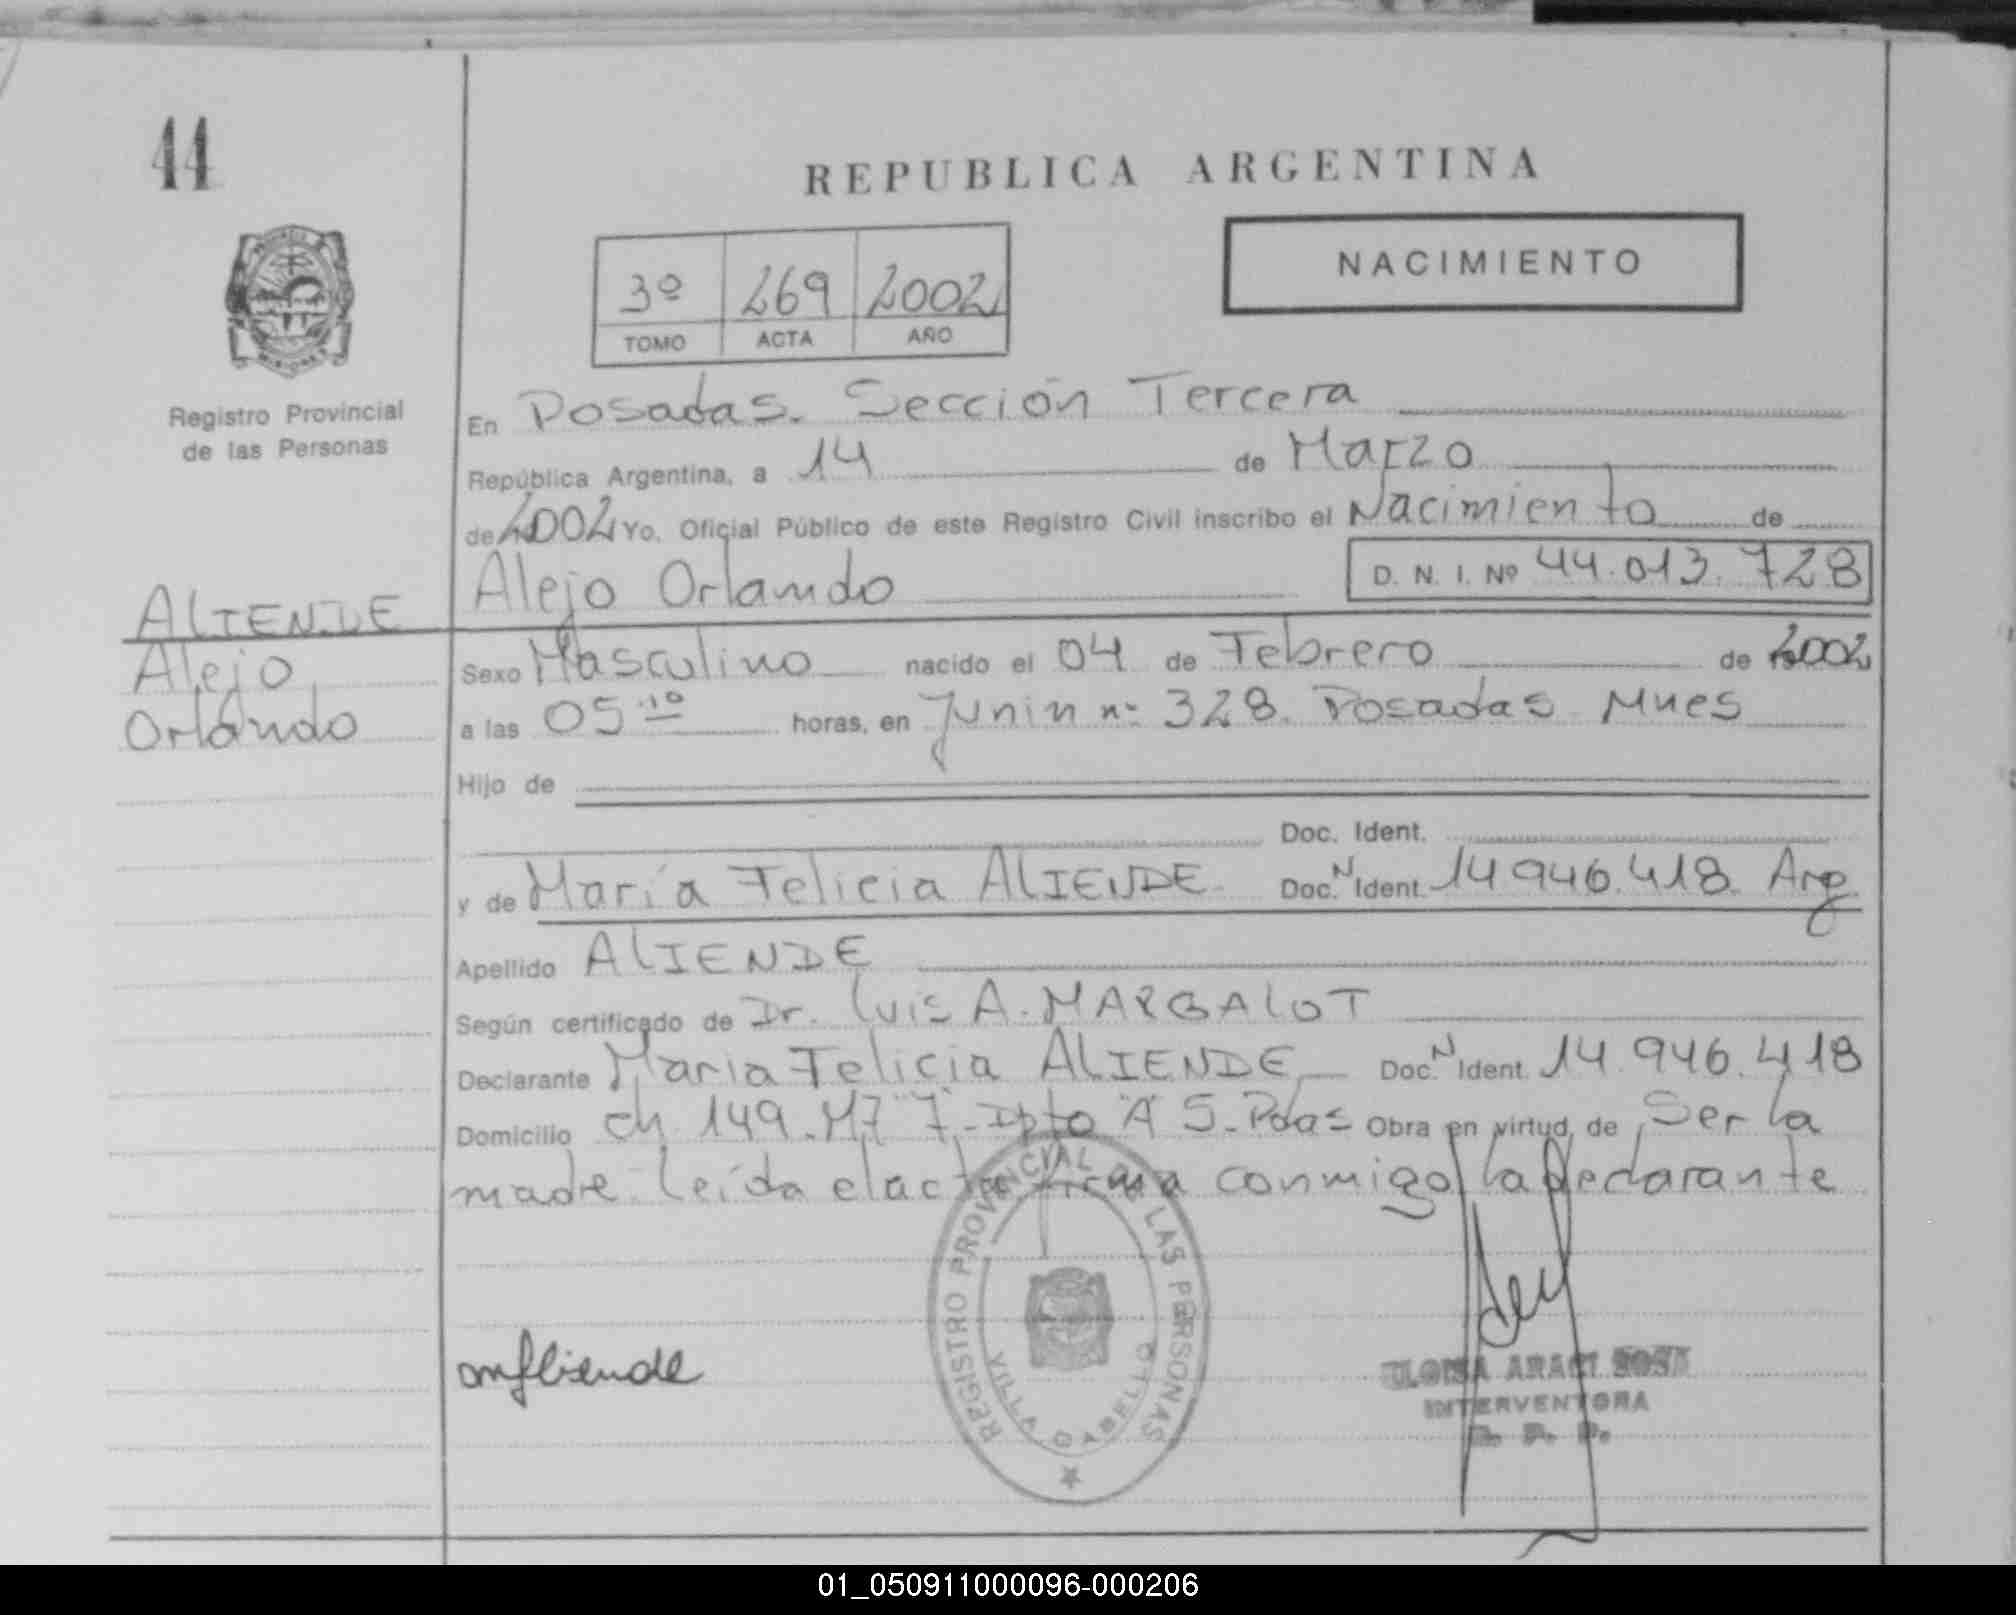 44
REPUBLICA ARGENTINA
NACIMIENTO
3º 269 2002
TOMO ACTA AÑO
Registro Provincial
de las Personas
En Posadas. Sección Tercera
República Argentina, a 14 de Marzo
de 2002 Yo, Oficial Público de este Registro Civil inscribo el Nacimiento de
Alejo Orlando D. N. I. Nº 44.013.728
ALIENDE
Alejo
Orlando
Sexo Masculino nacido el 04 de Febrero de 2002
a las 05.10 horas, en Junin nº 328. Posadas Mnes
Hijo de
Doc. Ident.
y de María Felicia ALIENDE Doc. N Ident. 14 946.418. Arg
Apellido ALIENDE
Según certificado de Dr. Luis A. MARGALOT
Declarante Maria Felicia ALIENDE Doc. N Ident. 14.946.418
Domicilio ch 149. Mz "7" Dpto "A" S. Pdas Obra en virtud de Ser la
madre leída el acta firma conmigo la declarante
REGISTRO PROVINCIAL DE LAS PERSONAS
VILLA CABELLO
mfliende
ARACI
INTERVENTORA
R. P. P.
01_050911000096-000206